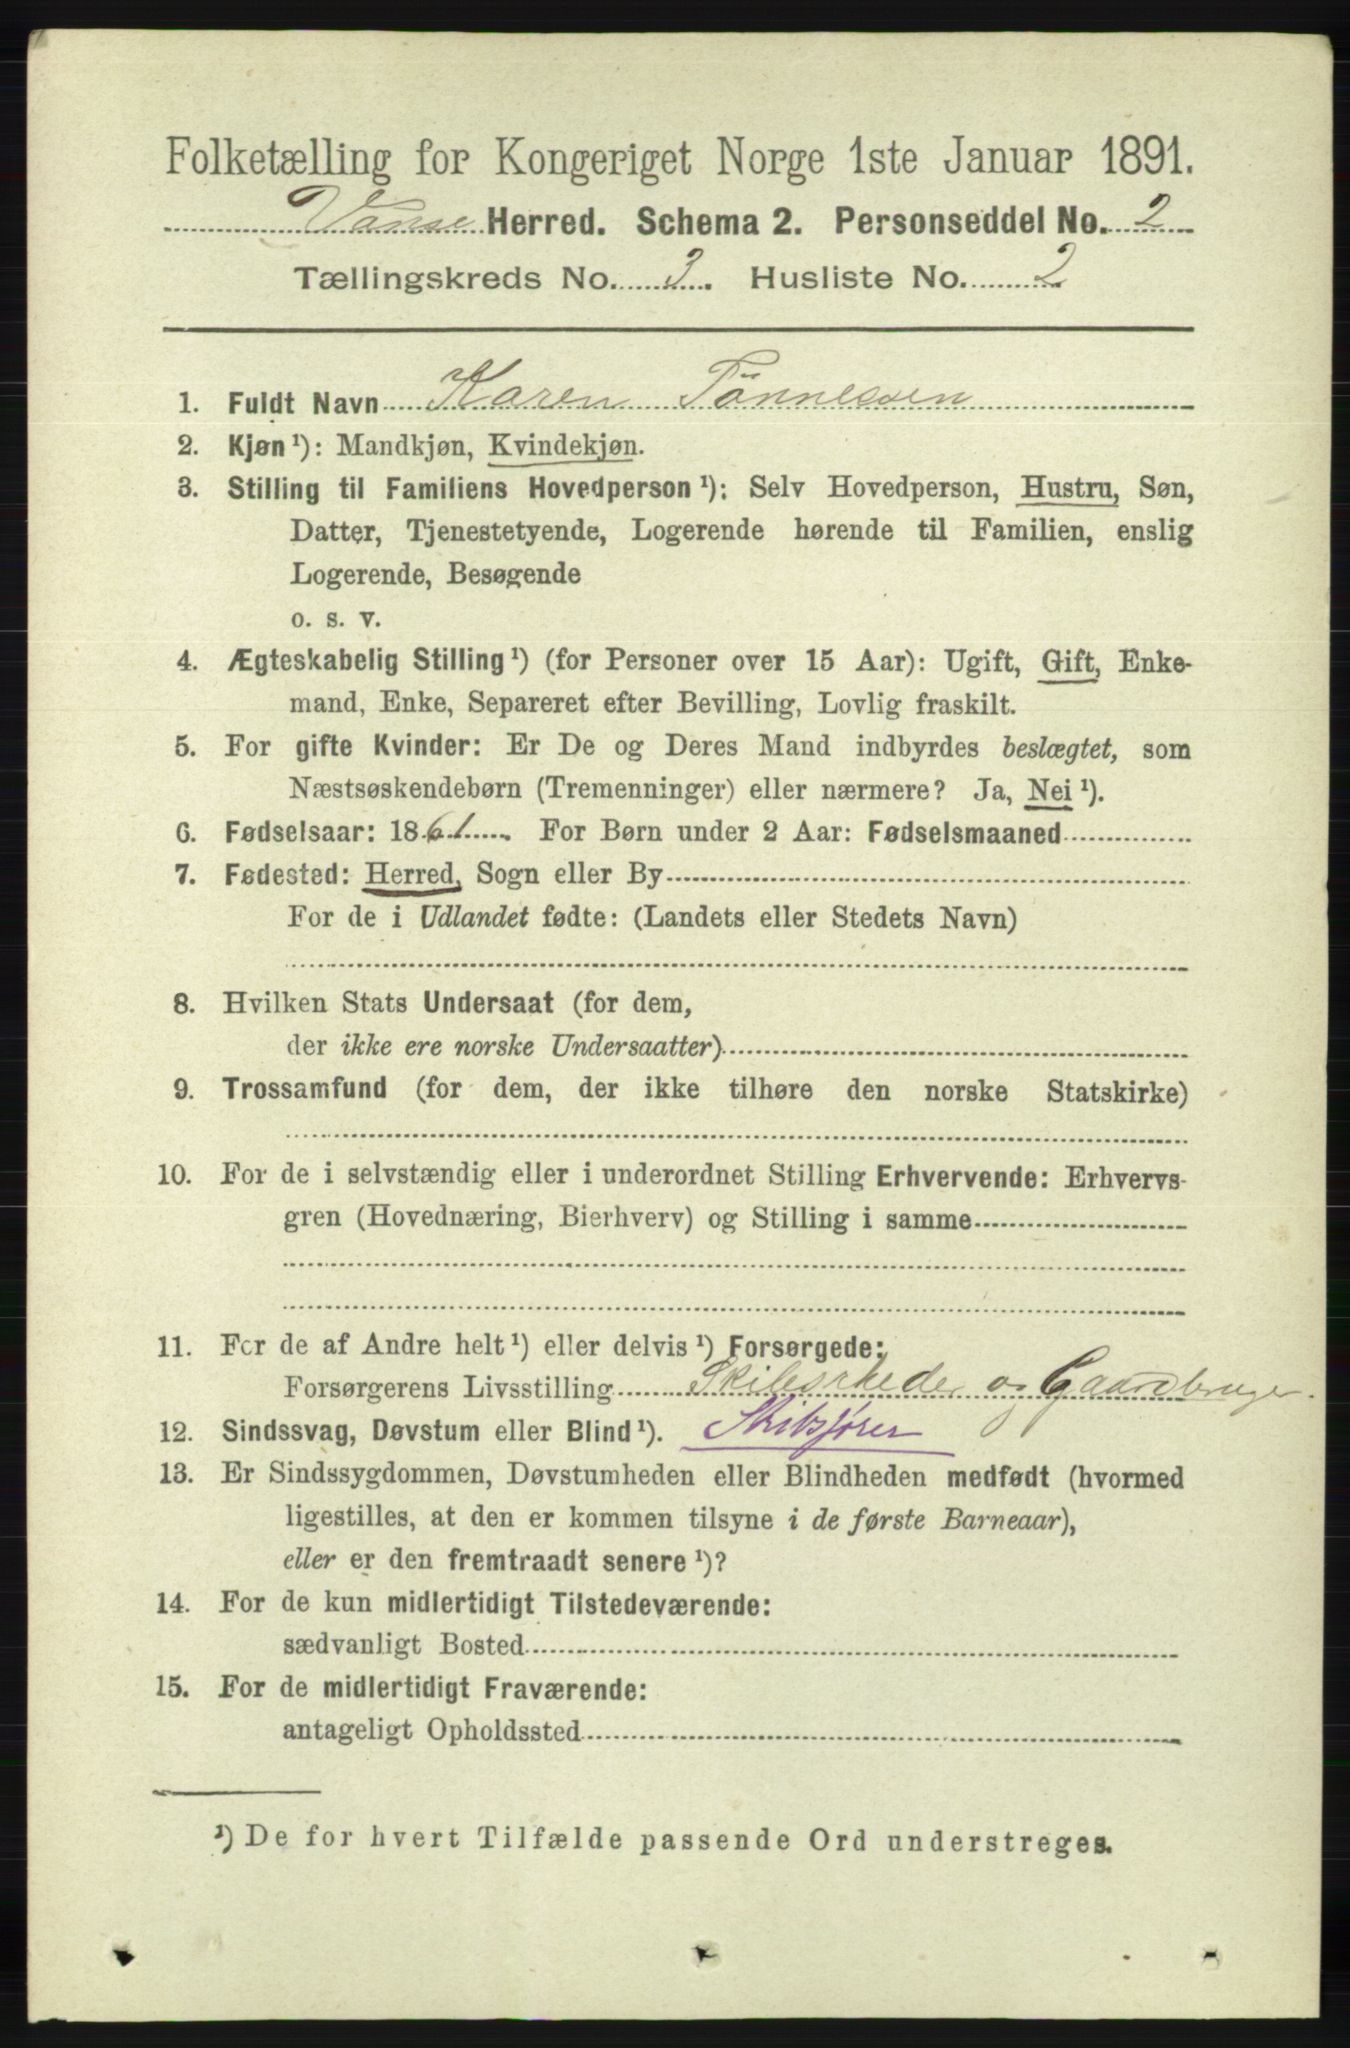 Folketælling for Kongeriget Norge 1ste Januar 1891.
Vanse Herred. Schema 2. Personseddel No. 2
Tællingskreds No. 3. Husliste No. 2
1. Fuldt Navn Karen Tönnessen
2. Kjøn ¹): Mandkjøn, Kvindekjøn.
3. Stilling til Familiens Hovedperson ¹): Selv Hovedperson, Hustru, Søn,
Datter, Tjenestetyende, Logerende hørende til Familien, enslig
Logerende, Besøgende
o. s. v.
4. Ægteskabelig Stilling ¹) (for Personer over 15 Aar): Ugift, Gift, Enke-
mand, Enke, Separeret efter Bevilling, Lovlig fraskilt.
5. For gifte Kvinder: Er De og Deres Mand indbyrdes beslægtet, som
Næstsøskendebørn (Tremenninger) eller nærmere? Ja, Nei ¹).
6. Fødselsaar: 1861. For Børn under 2 Aar: Fødselsmaaned
7. Fødested: Herred, Sogn eller By
For de i Udlandet fødte: (Landets eller Stedets Navn)
8. Hvilken Stats Undersaat (for dem,
der ikke ere norske Undersaatter)
9. Trossamfund (for dem, der ikke tilhøre den norske Statskirke)
10. For de i selvstændig eller i underordnet Stilling Erhvervende: Erhvervs-
gren (Hovednæring, Bierhverv) og Stilling i samme
11. For de af Andre helt ¹) eller delvis ¹) Forsørgede:
Forsørgerens Livsstilling Skibsrheder og Gaardbruger.
12. Sindssvag, Døvstum eller Blind ¹). Skibsfører
13. Er Sindssygdommen, Døvstumheden eller Blindheden medfødt (hvormed
ligestilles, at den er kommen tilsyne i de første Barneaar),
eller er den fremtraadt senere ¹)?
14. For de kun midlertidigt Tilstedeværende:
sædvanligt Bosted
15. For de midlertidigt Fraværende:
antageligt Opholdssted
¹) De for hvert Tilfælde passende Ord understreges.